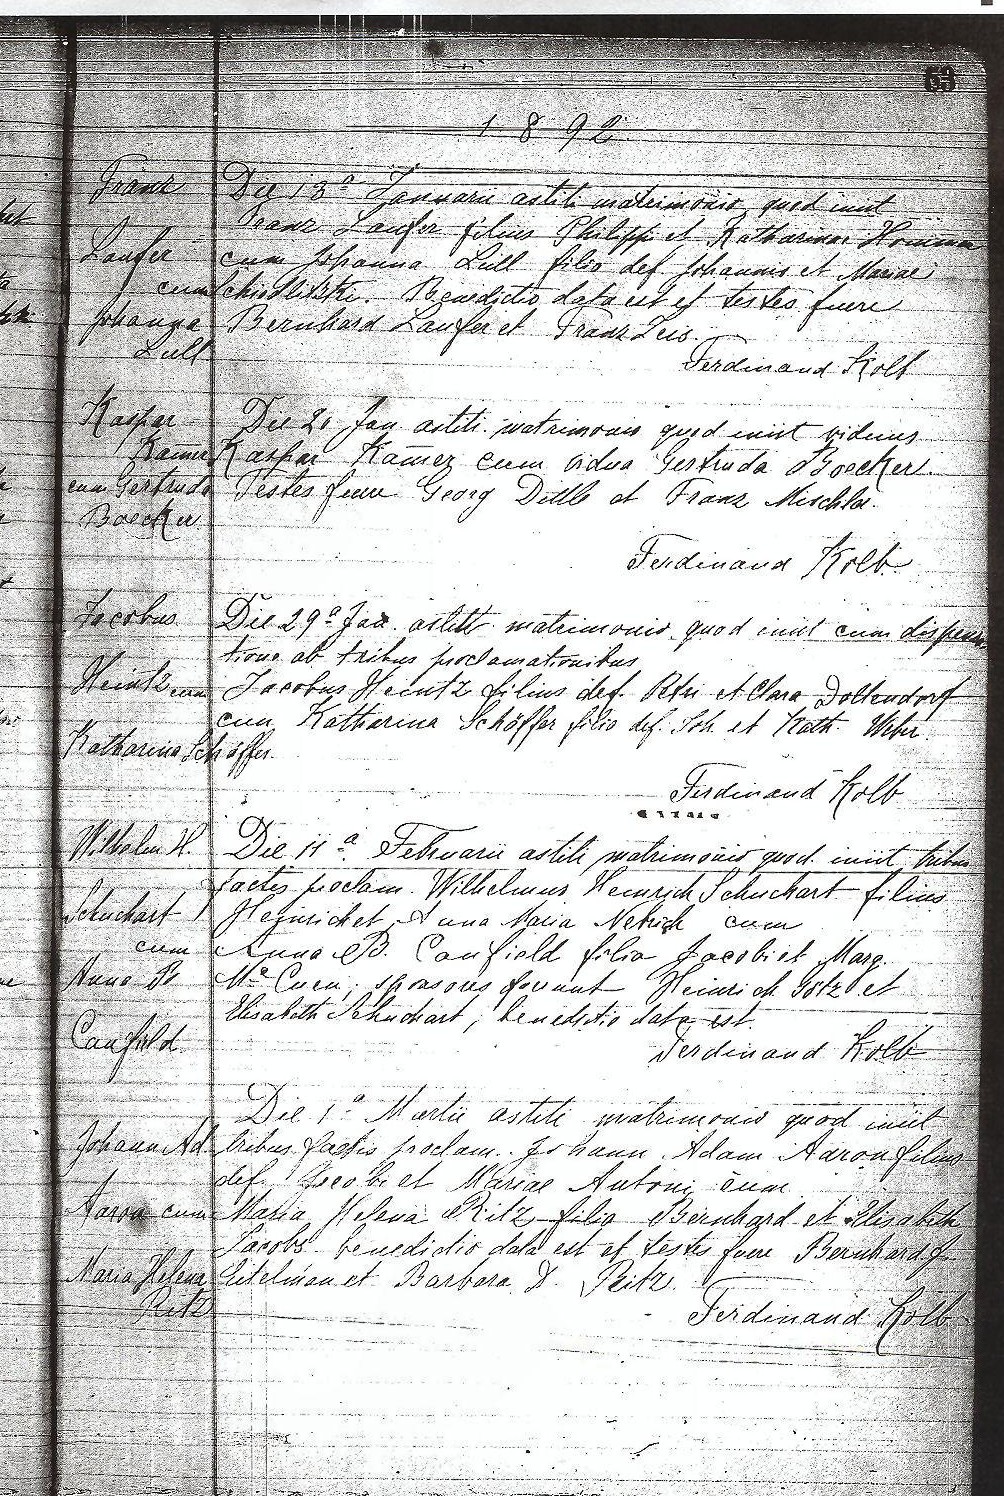 63
1892
Franz
Laufer
cum
Johanna
Lull
Die 13a Januarii astiti matrimonio quod iniit
Franz Laufer filius Philippi et Katharinae Homman
cum Johanna Lull filia def. Johannis et Mariae
. Benedictio data est et testes fuere
Bernhard Laufer et Franz Zeis.
Ferdinand Kolb
Kaspar
Kamer
cum Gertruda
Boecker
Die 20 Jan astiti matrimonio quod iniit viduus
Kaspar Kamer cum vidua Gertruda Boecker.
Testes fuere Georg Dittle et Franz Mischler.
Ferdinand Kolb
Jacobus
Heintz cum
Katharina Schäffer.
Die 29a Jan. astiti matrimonio quod iniit cum dispensa
tione ab tribus proclamationibus
Jacobus Heintz filius def. Petri et Clara Dollendorf
cum Katharina Schöffer filia def. Joh. et Kath. Weber.
Ferdinand Kolb
Wilhelm H.
Schuchart
cum
Anna B
Canfield.
Die 11a. Februarii astiti matrimonio quod iniit tribus
factis proclam. Wilhelmus Heinrich Schuchart filius
Heinrich et Anna Maria cum
Anna B. Canfield filia Jacobi et Marg.
Mc Cuen; sponsores fuerunt Heinrich Götz et
Elisabeth Schuchart; benedictio data est.
Ferdinand Kolb
Johann Ad.
Aaron cum
Maria Helena
Ritz
Die 1a Martii astiti matrimonio quod iniit
tribus factis proclam. Johann Adam Aaron filius
def. Jacobi et Mariae Antoni cum
Maria Helena Ritz filia Bernhard et Elisabeth
Jacobs. benedictio data est et testes fuere Bernhard J.
Eitelman et Barbara D. Ritz.
Ferdinand Kolb